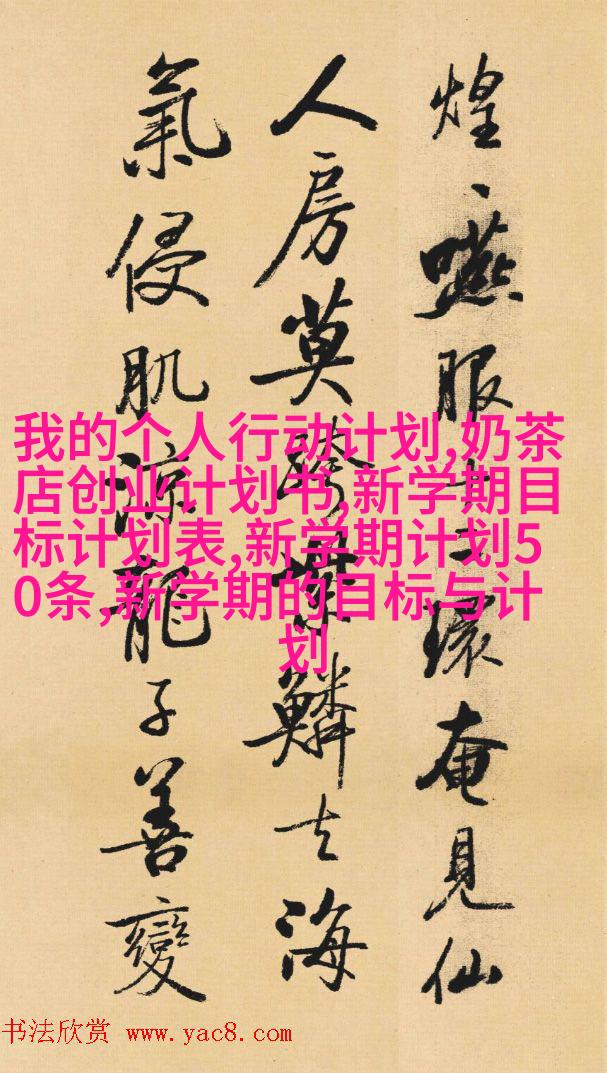 煌、嚥服十二環奄見仙
人房莫跨紫鱗去海
氣侵肌涼龍子善變
我的个人行动计划,奶茶
店创业计划书,新学期目
标计划表,新学期计划5
0条,新学期的目标与计
划
书法欣赏 www.yac8.com